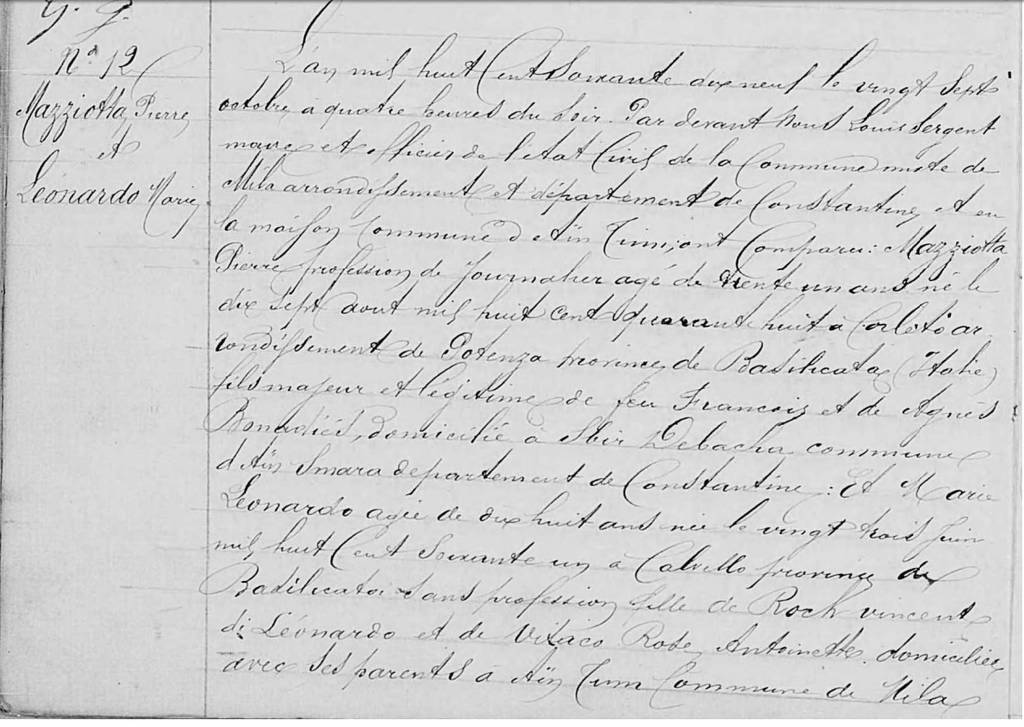 N° 12
Mazziotta Pierre
et
Léonardo Marie
L'an mil huit Cent Soixante dix neuf le vingt Sept
octobre a quatre heures du Soir. Par devant Nous Louis Sergent
maire et officier de l'etat Civil de la Commune mixte de
Mila arrondissement et département de Constantine, et en
la maison Commune d'Aïn Tinn, ont Comparu: Mazziotta
Pierre profession de Journalier agé de trente un ans né le
dix sept aout mil huit cent quarante huit à Corleto ar
rondissement de Potenza province de Basilicata (Italie)
fils majeur et légitime de feu Francois et de Agnès
domicilié à Sbir Debacha commune
d'Aïn Smara departement de Constantine: Et Marie
Léonardo agée de dix huit ans née le vingt trois Juin
mil huit Cent Soixante un à Calvello province de
Basilicata sans profession fille de Roch vincent
di Léonardo et de Vitaco Rose Antoinette domiciliée
avec ses parents à Aïn Tinn Commune de Mila